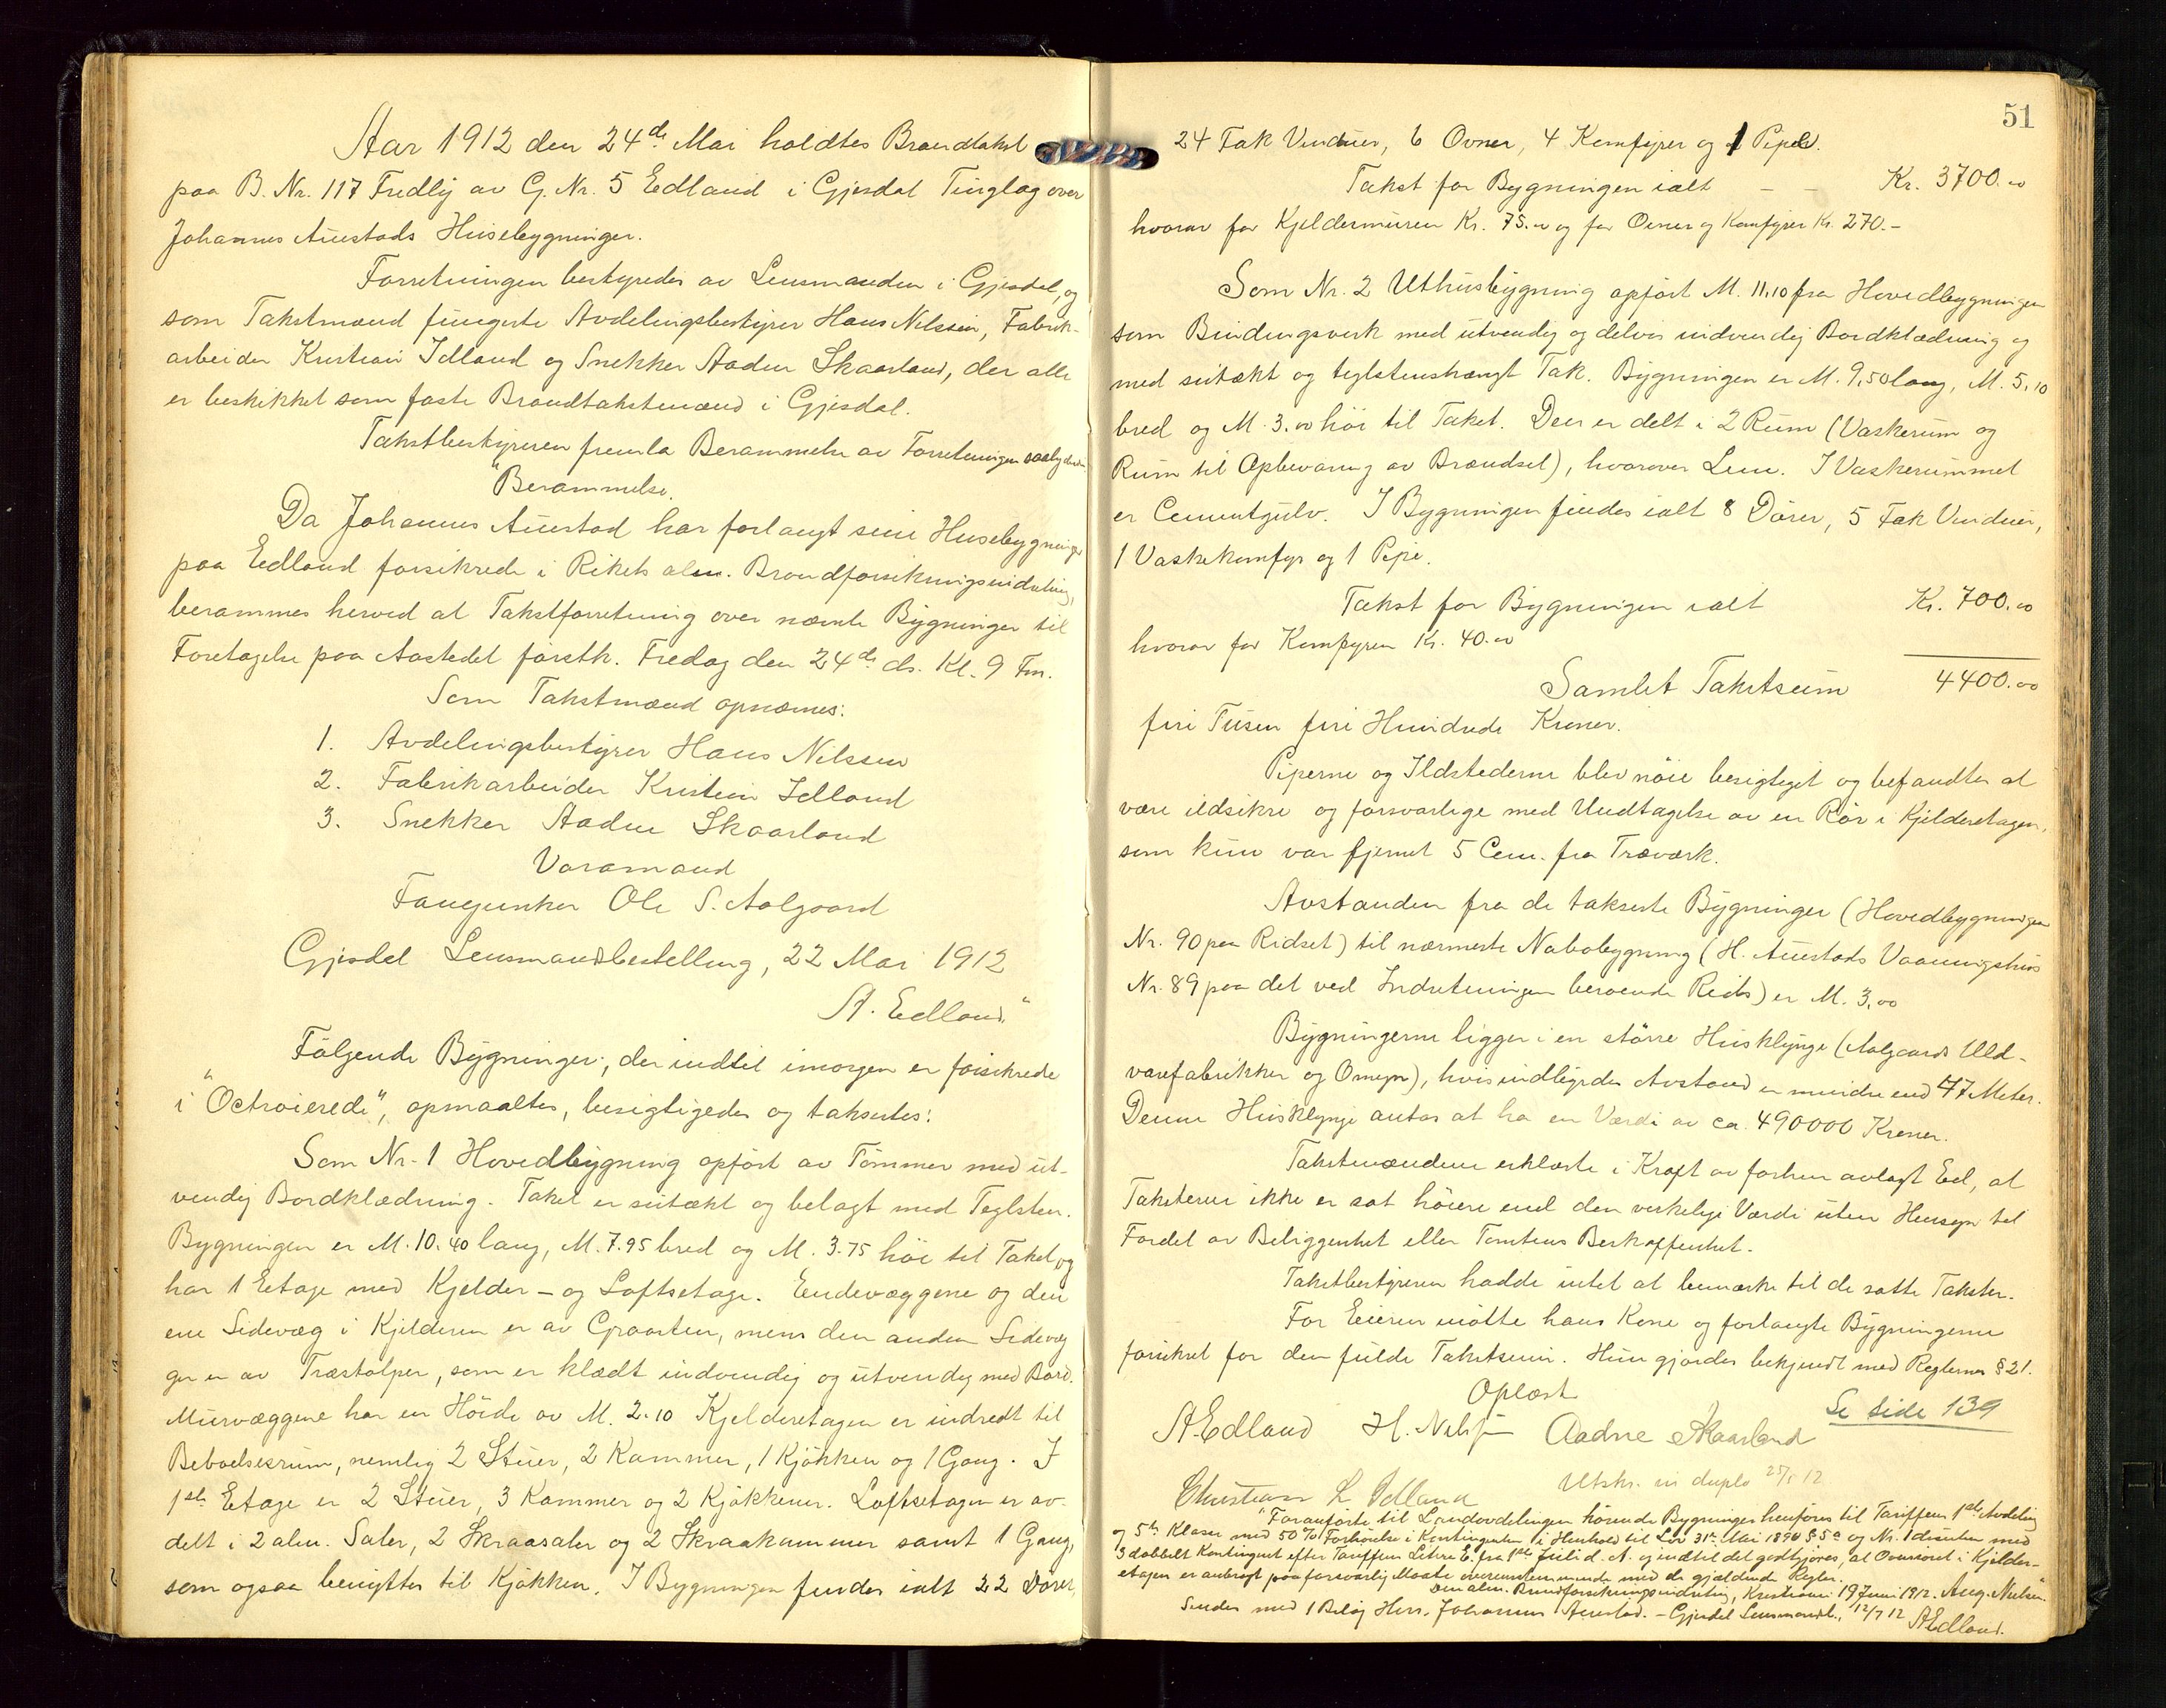 Aar 1912 den 24de Mai holdtes Brandtakst
paa B. Nr. 117 Fredly av G. Nr. 5 Edland i Gjesdal Tinglag over
Johannes Auestads Husebygninger.
Forretningen bestyredes av Lensmanden i Gjesdal, og
som Takstmænd fungerte Avdelingsbestyrer Hans Nilssen, Fabrik-
arbeider Kristian Idland og Snekker Aadne Skaarland, der alle
er beskikket som faste Brandtakstmænd i Gjesdal.
Takstbestyreren fremla Berammelse av Forretningen saalydende
"Berammelse.
Da Johannes Auestad har forlangt sine Husebygninger
paa Edland forsikrede i Rikets alm. Brandforsikringsindretning,
berammes herved at Takstforretning over nævnte Bygninger til
Foretagelse paa Aastedet førstk. Fredag den 24de ds. Kl. 9 Fm.
Som Takstmænd opnævnes:
1. Avdelingsbestyrer Hans Nilssen
2. Fabrikarbeider Kristian Idland
3. Snekker Aadne Skaarland
Varamand
Ole S. Aalgaard
Gjesdal Lensmandsbestilling, 22 Mai 1912
A. Edland"
Følgende Bygninger, der indtil imorgen er forsikrede
i "Octroierede", opmaaltes, besigtigedes og taksertes:
Som Nr. 1 Hovedbygning opført av Tømmer med ut-
vendig Bordklædning. Taket er sutækt og belagt med Teglsten.
Bygningen er M. 10.40 lang, M. 7.95 bred og M. 3.75 høi til Taket, og
har 1 Etage med Kjelder- og Loftsetage. Endevæggene og den
ene Sidevæg i Kjelderen er av Graasten, mens den anden Sidevæg
er av Træstolper, som er klædt indvendig og utvendig med Bord.
Murvæggene har en Høide av M. 2.10 Kjelderetagen er indredt til
Beboelsesrum, nemlig 2 Stuer, 2 Kammer, 1 Kjøkken og 1 Gang. I
1ste Etage er 2 Stuer, 3 Kammer og 2 Kjøkkener. Loftsetagen er av-
delt i 2 alm. Saler, 2 Skraasaler og 2 Skraakammer samt 1 Gang,
som ogsaa benyttes til Kjøkken. I Bygningen findes ialt 22 Dører,
51
24 Fak Vinduer, 6 Ovner, 4 Komfyrer og 1 Pipe.
Takst for Bygningen ialt - - Kr. 3700.00
hvorav for Kjeldermuren Kr. 75.00 og for Ovner og Komfyrer Kr. 270.-
Som Nr. 2 Uthusbygning opført M. 11,10 fra Hovedbygningen
som Bindingsverk med utvendig og delvis indvendig Bordklædning og
med sutækt og teglstenshængt Tak. Bygningen er M. 9,50 lang, M. 5,10
bred og M. 3.00 høi til Taket. Den er delt i 2 Rum (Vaskerum og
Rum til Opbevaring av Brændsel), hvorover Lem. I Vaskerummet
er Cementgulv. I Bygningen findes ialt 8 Dører, 5 Fak Vinduer,
1 Vaskekomfyr og 1 Pipe.
Takst for Bygningen ialt Kr. 700.00
hvorav for Komfyren Kr. 40.00
Samlet Takstsum 4400.00
firi Tusen firi Hundrede Kroner.
Piperne og Ildstederne blev nøie besigtiget og befandtes at
være ildsikre og forsvarlige med Undtagelse av en Rør i Kjelderetagen,
som kun var fjernet 5 Cem. fra Træværk.
Avstanden fra de takserte Bygninger (Hovedbygningen
Nr. 90 paa Ridset) til nærmeste Nabobygning (H. Auestads Vaaningshus
Nr. 89 paa det ved Indretningen beroende Rids) er M. 3,00
Bygningerne ligger i en større Husklynge (Aalgaards Uld-
varefabrikker og Omegn), hvis indbyrdes Avstand er mindre end 47 Meter.
Denne Husklynge antas at ha en Værdi av ca. 490000 Kroner.
Takstmændene erklærte i Kraft av forhen avlagt Eed, at
Taksterne ikke er sat høiere end den virkelige Værdi uten Hensyn til
Fordel av Beliggenhet eller Tomtens Beskaffenhet.
Takstbestyreren hadde intet at bemærke til de satte Takster.
For Eieren møtte hans Kone og forlangte Bygningerne
forsikret for den fulde Takstsum. Hun gjordes bekjendt med Reglernes § 21.
Oplæst
Se side 139
A Edland H. Nilssen Aadne Skaarland
Christian L Idland Utskr. in duplo 25/5 12
"Foranførte til Landavdelingen hørende Bygninger henføres til Tariffens 1ste Avdeling
og 5te Klasse med 50% Forhøielse i Kontingenten i Henhold til Lov 31te Mai 1890 § 5a og Nr. 1 desuten med
3 dobbelt Kontingent efter Tariffens Litra E. fra 1ste Juli d. A. og indtil det godtgjøres, at Ovnsrøret i Kjelder-
etagen er anbragt paa forsvarlig Maate overensstemmende med de gjældende Regler.
Den alm. Brandforsikringsindretning, Kristiania 19 Juni 1912. Aug. Nielsen."
Sendes med 1 Bilag Herr. Johannes Auestad. - Gjesdal Lensmandsb., 12/7 12 A Edland.